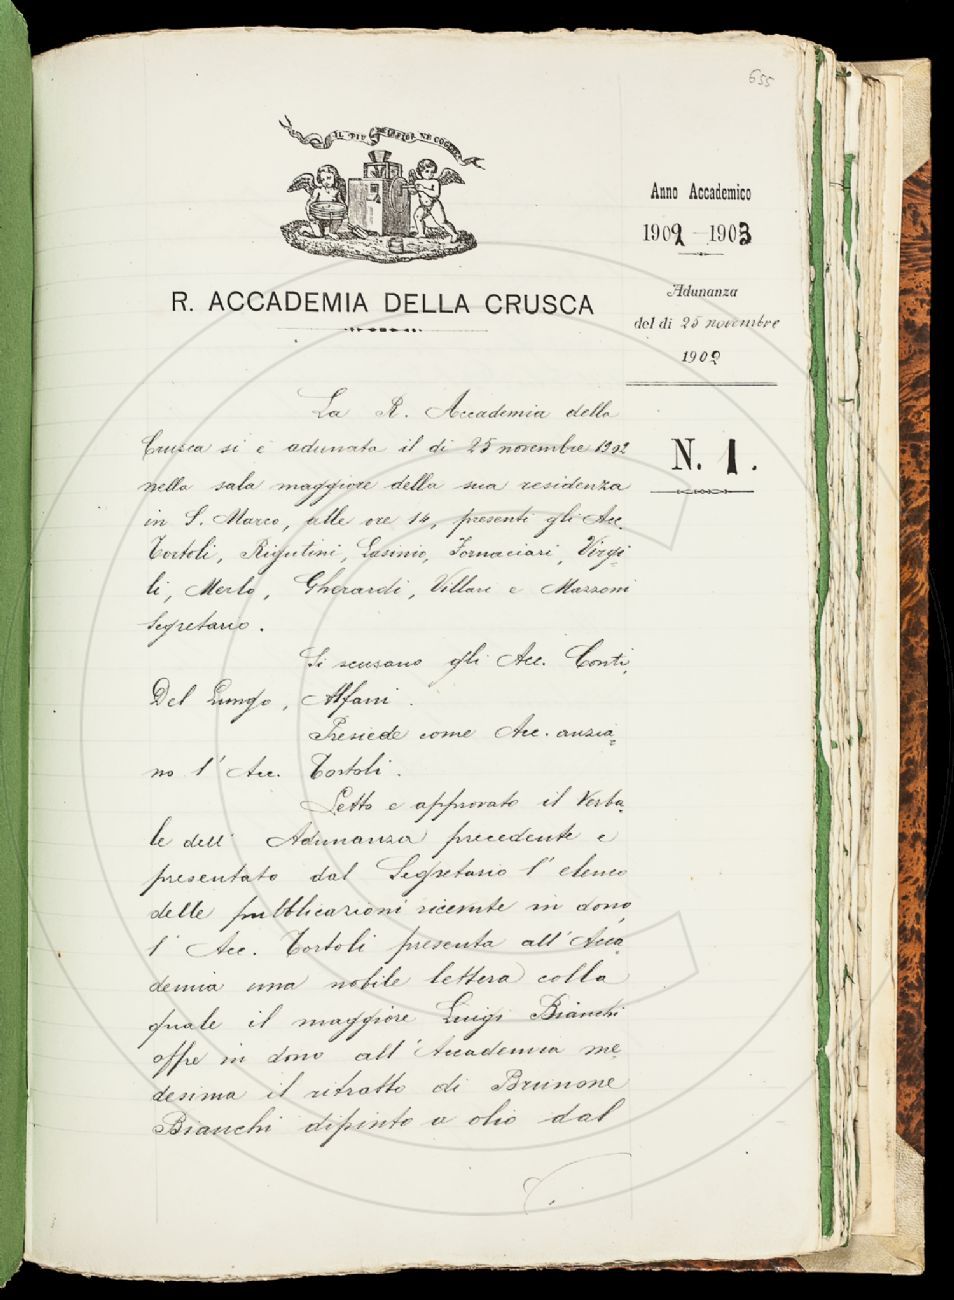 655
IL PIÙ BEL FIOR NE COGLIE
R. ACCADEMIA DELLA CRUSCA
Anno Accademico
1902-1903
Adunanza
del dì 25 novembre
1902
N. 1.
La R. Accademia della
Crusca si è adunata il dì 25 novembre 1902
nella sala maggiore della sua residenza
in S. Marco, alle ore 14, presenti gli Acc.
Tortoli, Rigutini, Lasinio, Fornaciari, Virgi=
li, Merlo, Gherardi, Villari e Mazzoni
Segretario.
Si scusano gli Acc. Conti,
Del Lungo, Alfani.
Presiede come Acc. anzia=
no l'Acc. Tortoli.
Letto e approvato il Verba=
le dell'Adunanza precedente e
presentato dal Segretario l'elenco
delle pubblicazioni ricevute in dono,
l'Acc. Tortoli presenta all'Acca=
demia una nobile lettera colla
quale il maggiore Luigi Bianchi
offre in dono all'Accademia me=
desima il ritratto di Brunone
Bianchi dipinto a olio dal